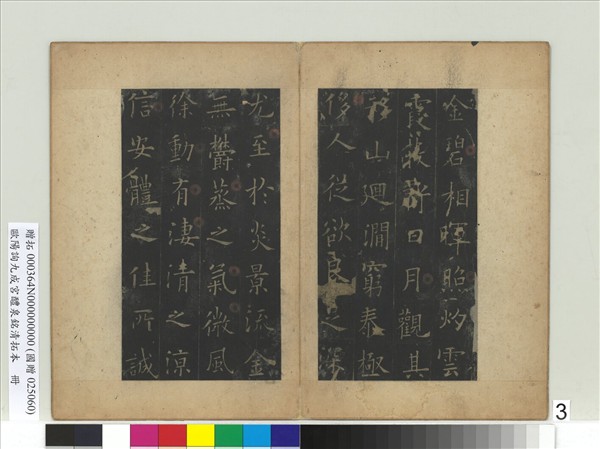 金碧相暉照灼雲
霞蔽虧日月觀其
移山迴澗窮泰極
侈人從欲良足深
尤至於炎景流金
無鬱蒸之氣微風
徐動有淒清之涼
信安體之佳所誠
贈拓 000364N000000000 (國贈 025060)
歐陽詢九成宮醴泉銘清拓本 冊
3